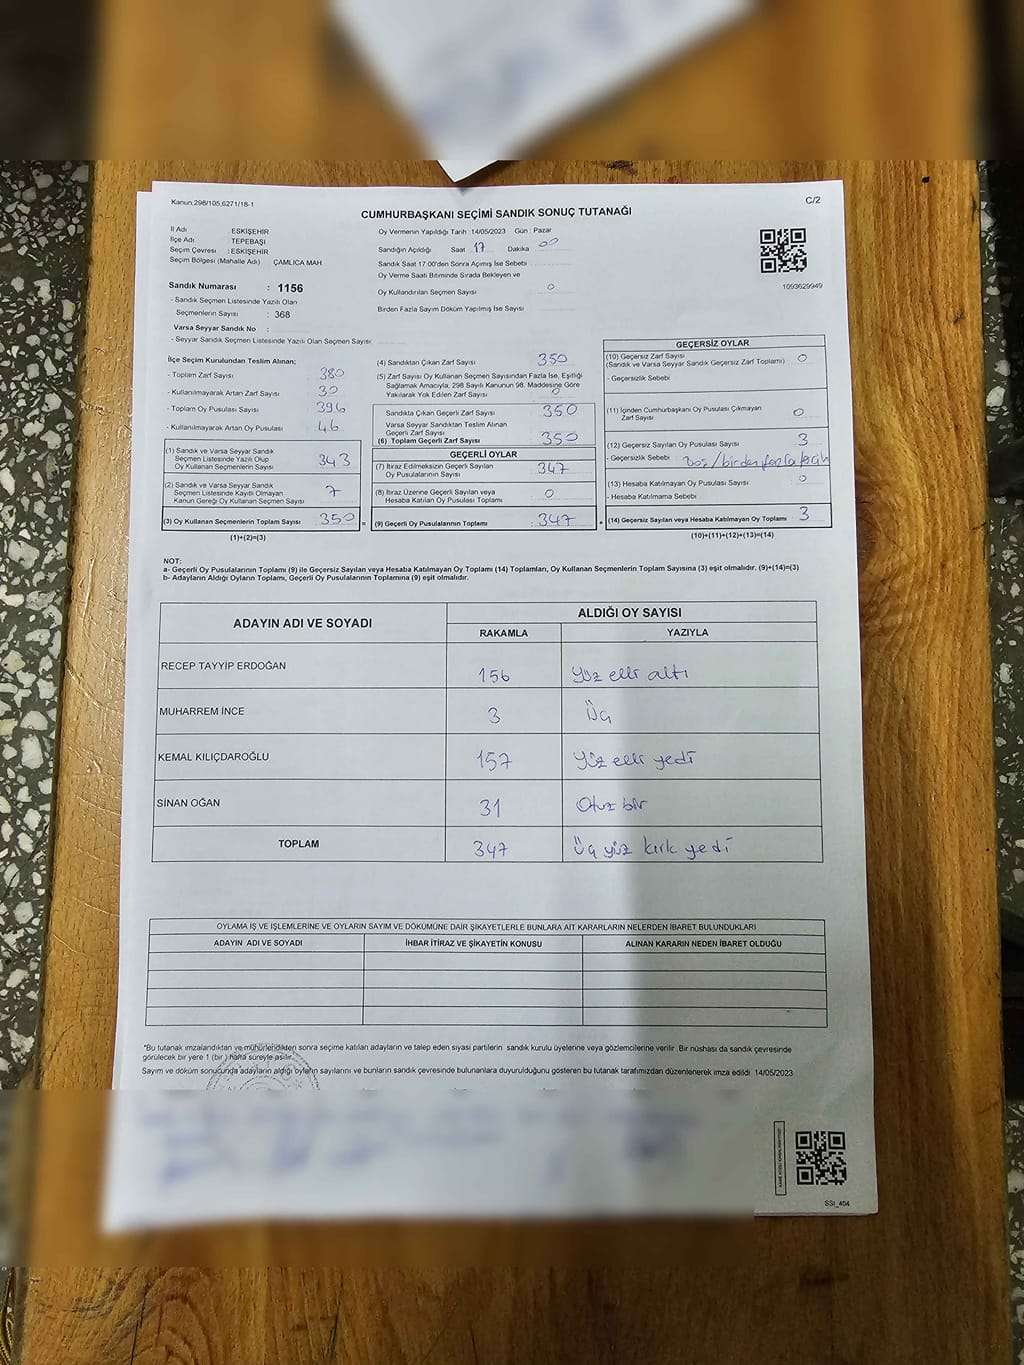 Kanun,298/105,6271/18-1
C/2
CUMHURBAŞKANI SEÇİMİ SANDIK SONUÇ TUTANAĞI
İl Adı ESKİŞEHİR
İlçe Adı : TEPEBAŞI
Seçim Çevresi : ESKİŞEHİR
Seçim Bölgesi (Mahalle Adı) ÇAMLICA MAH
Sandık Numarası : 1156
- Sandık Seçmen Listesinde Yazılı Olan
Seçmenlerin Sayısı : 368
Varsa Seyyar Sandık No :
- Seyyar Sandık Seçmen Listesinde Yazılı Olan Seçmen Sayısı
Oy Vermenin Yapıldığı Tarih :14/05/2023 Gün : Pazar
Sandığın Açıldığı Saat 17 Dakika 00
Sandık Saat 17:00'den Sonra Açımış İse Sebebi
Oy Verme Saati Bitiminde Sırada Bekleyen ve
Oy Kullandırılan Seçmen Sayısı 0
Birden Fazla Sayım Döküm Yapılmış İse Sayısı
1093629949
İlçe Seçim Kurulundan Teslim Alınan;
- Toplam Zarf Sayısı 380
- Kullanılmayarak Artan Zarf Sayısı 30
- Toplam Oy Pusulası Sayısı 396
- Kullanılmayarak Artan Oy Pusulası 46
(1) Sandık ve Varsa Seyyar Sandık
Seçmen Listesinde Yazılı Olup
Oy Kullanan Seçmenlerin Sayısı 343
(2) Sandık ve Varsa Seyyar Sandık
Seçmen Listesinde Kayıtlı Olmayan
Kanun Gereği Oy Kullanan Seçmen Sayısı 7
(3) Oy Kullanan Seçmenlerin Toplam Sayısı 350 =
(1)+(2)=(3)
(4) Sandıktan Çıkan Zarf Sayısı 350
(5) Zarf Sayısı Oy Kullanan Seçmen Sayısından Fazla İse, Eşitliği
Sağlamak Amacıyla; 298 Sayılı Kanunun 98. Maddesine Göre
Yakılarak Yok Edilen Zarf Sayısı 0
Sandıkla Çıkan Geçerli Zarf Sayısı 350
Varsa Seyyar Sandıktan Teslim Alınan
Geçerli Zarf Sayısı
(6) Toplam Geçerli Zarf Sayısı 350
GEÇERLİ OYLAR
(7) İtiraz Edilmeksizin Geçerli Sayılan
Oy Pusulalarının Sayısı 347
(8) İtiraz Üzerine Geçerli Sayılan veya
Hesaba Katılan Oy Pusulası Toplamı 0
(9) Geçerli Oy Pusulalarının Toplamı : 347 +
GEÇERSİZ OYLAR
(10) Geçersiz Zarf Sayısı
(Sandık ve Varsa Seyyar Sandık Geçersiz Zarf Toplamı) 0
- Geçersizlik Sebebi
(11) İçinden Cumhurbaşkanı Oy Pusulası Çıkmayan
Zarf Sayısı 0
(12) Geçersiz Sayılan Oy Pusulası Sayısı 3
- Geçersizlik Sebebi Boş/birden fazla
(13) Hesaba Katılmayan Oy Pusulası Sayısı 0
- Hesaba Katılmama Sebebi
(14) Geçersiz Sayılan veya Hesaba Katılmayan Oy Toplamı 3
(10)+(11)+(12)+(13)=(14)
NOT:
a- Geçerli Oy Pusulalarının Toplamı (9) ile Geçersiz Sayılan veya Hesaba Katılmayan Oy Toplamı (14) Toplamları, Oy Kullanan Seçmenlerin Toplam Sayısına (3) eşit olmalıdır. (9)+(14)=(3)
b- Adayların Aldığı Oyların Toplamı, Geçerli Oy Pusulalarının Toplamına (9) eşit olmalıdır.
ADAYIN ADI VE SOYADI
ALDIĞI OY SAYISI
RAKAMLA YAZIYLA
RECEP TAYYİP ERDOĞAN 156 Yüz elli altı
MUHARREM İNCE 3 Üç
KEMAL KILIÇDAROĞLU 157 Yüz elli yedi
SİNAN OĞAN 31 Otuz bir
TOPLAM 347 Üç yüz kırk yedi
OYLAMA İŞ VE İŞLEMLERİNE VE OYLARIN SAYIM VE DÖKÜMÜNE DAİR ŞİKAYETLERLE BUNLARA AİT KARARLARIN NELERDEN İBARET BULUNDUKLARI
ADAYIN ADI VE SOYADI İHBAR İTİRAZ VE ŞİKAYETİN KONUSU ALINAN KARARIN NEDEN İBARET OLDUĞU
*Bu tutanak imzalandıktan ve mühürlendikten sonra seçime katılan adayların ve talep eden siyasi partilerin sandık kurulu üyelerine veya gözlemcilerine verilir. Bir nüshası da sandık çevresinde
görülecek bir yere 1 (bir ) hafta süreyle asılır.
Sayım ve döküm sonucunda adayların aldığı oyların sayılarını ve bunların sandık çevresinde bulunanlara duyurulduğunu gösteren bu tutanak tarafımızdan düzenlenerek imza edildi. 14/05/2023
SSI_404